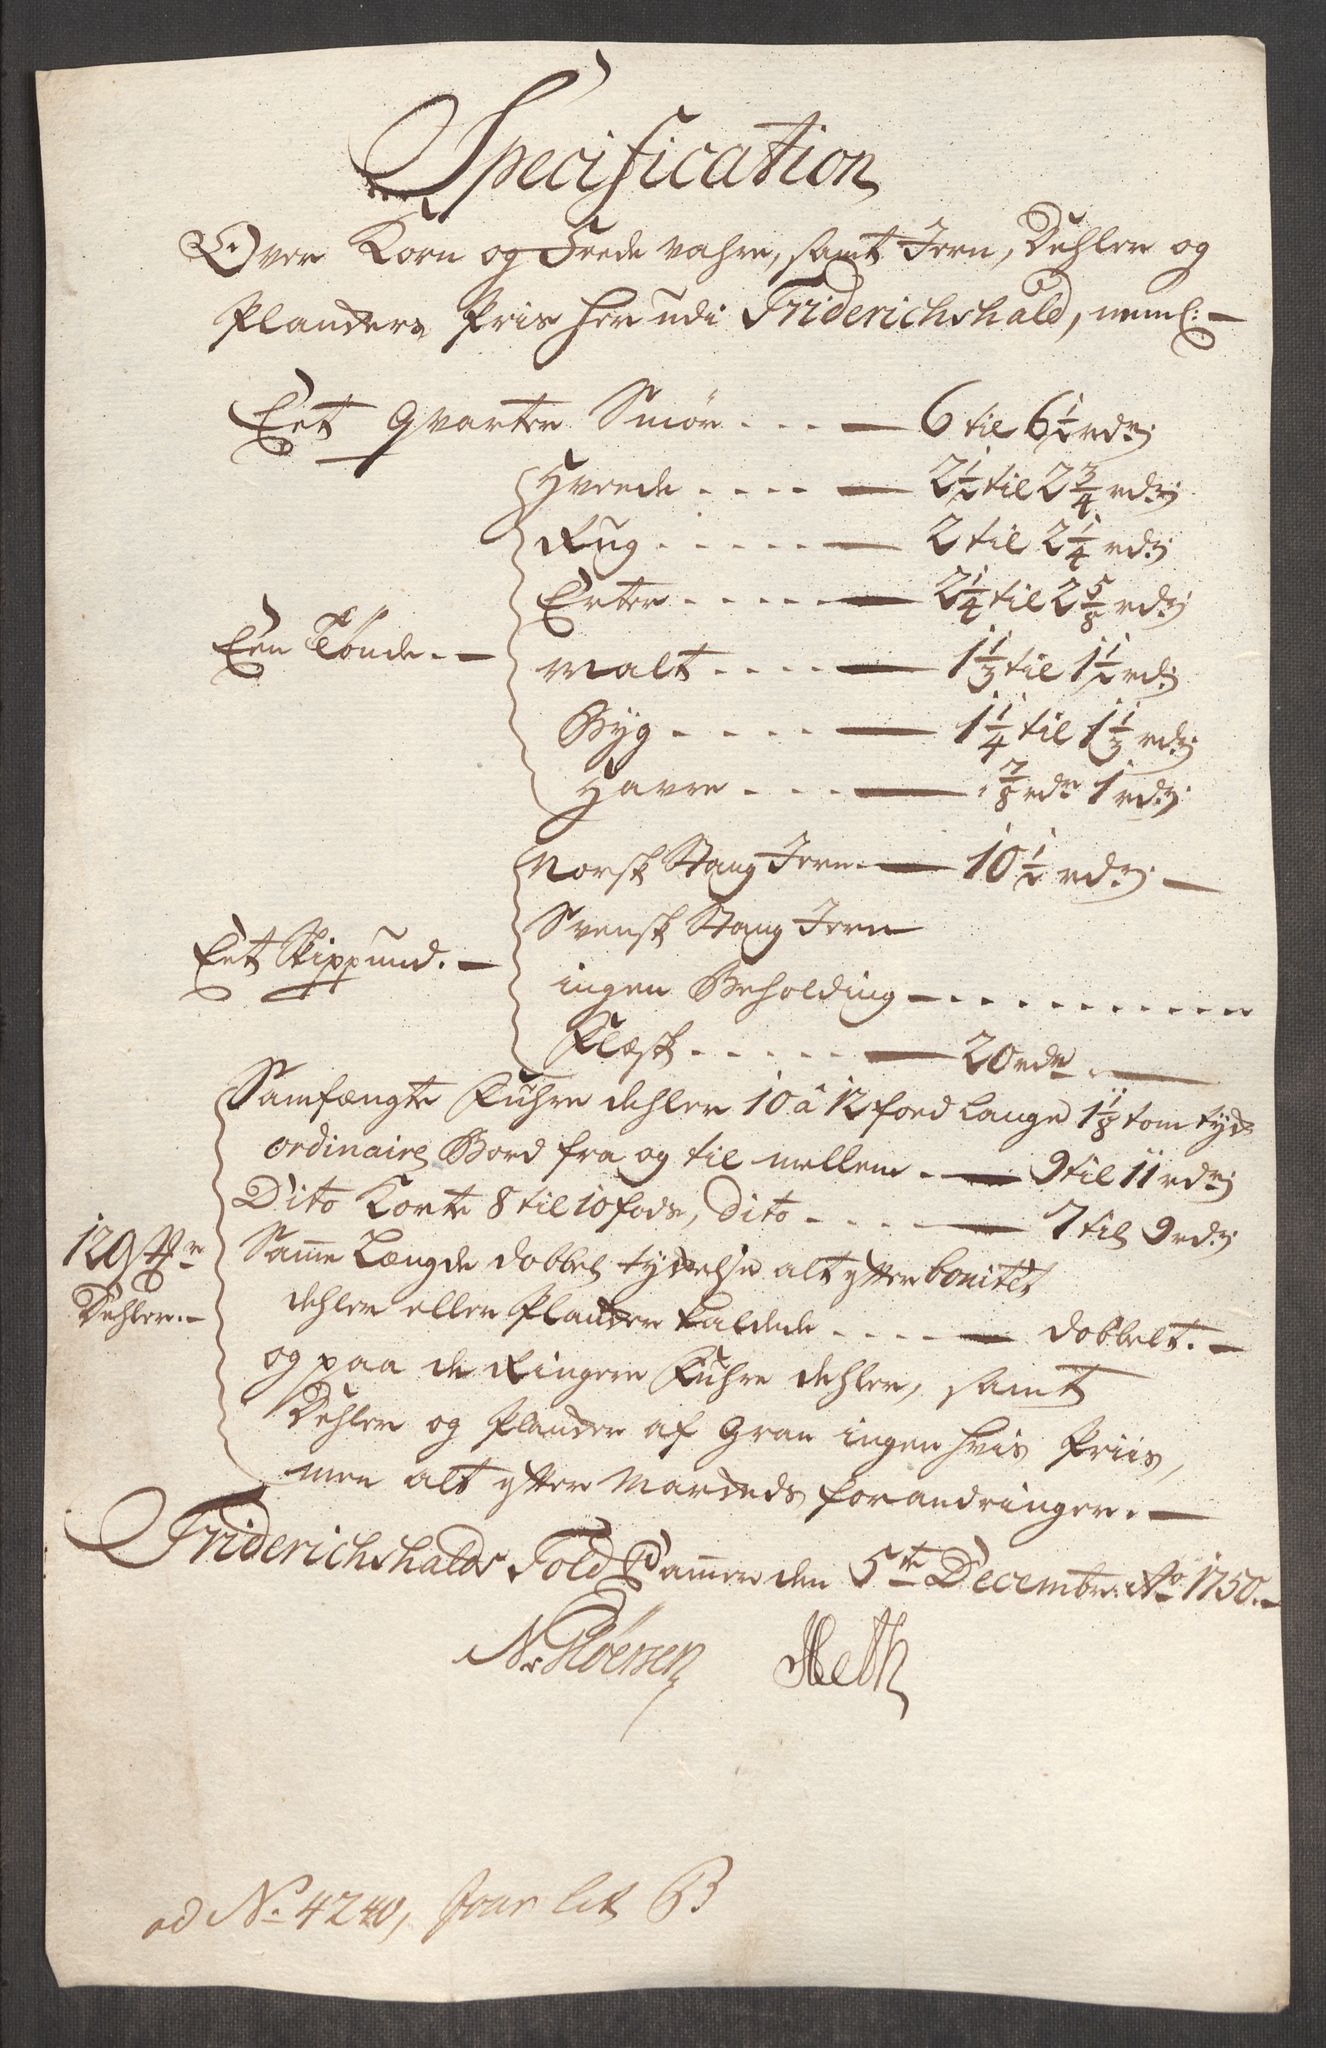 Specification
Over Korn og Fede vahre, samt Jern, Dehler og
Plancker Pris her udi Friderichshald, neml:
Eet Qvarter Smør . . . — 6 til 6½ rdr:
Hvede . . . . — 2½ til 2¾ rdr:
Rug . . . . . — 2 til 2¼ rdr:
Erter . . . . . — 2¼ til 2⅝ rdr:
Een Tønde. —
Malt . . . . — 1⅓ til 1½ rdr:
Byg . . . . — 1¼ til 1⅓ rdr:
Havre . . . — ⅞ rdr 1 rdr:
Norsk Stang Jern — 10½ rdr: —
Svensk Stang Jern
Eet Skippund. —
ingen Beholding — . . . . . . . . .
Flæsk . . . . . — 20 rdr . —
Samfængte Fuhre dehler 10 à 12 foed Lange 1⅛ tom tyck
ordinaire Bord fra og til mellem . — 9 til 11 rdr:
Dito Korte 8 til 10 fods, Dito . . . — 7 til 9 rdr:
120 St:r
Dehler. —
Samme Længde dobbel tyckelse alt efter bonitet
dehler eller Plancker kaldede . . . . — dobbelt. —
og paa de Ringere Fuhre dehler, samt
Dehler og Plancker af Gran ingen hvis Priis,
men alt efter Marckeds forandringer. —
Friderichshalds Told Cammer den 5te Decembr: Ao 1750. —
ad No. 4240, Jour lit B